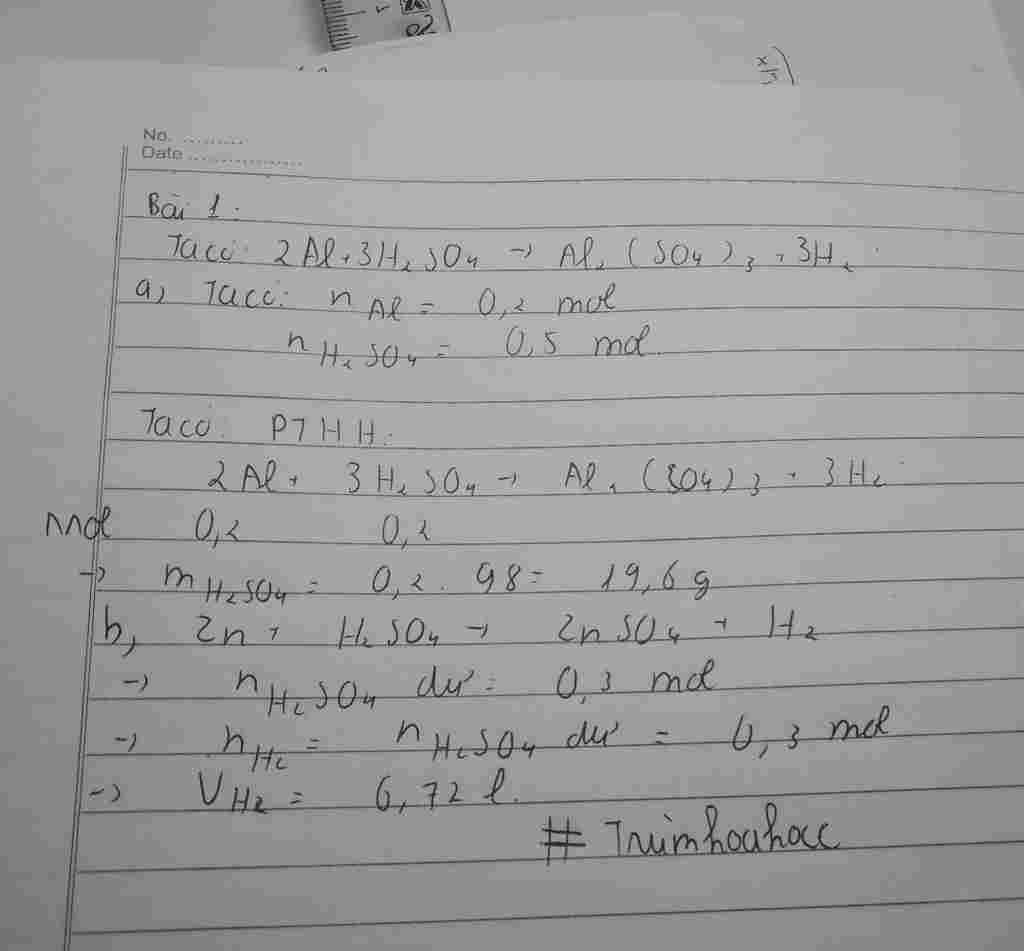 02
x/3)
No. .........
Date ..................
Bài 1:
Ta có: 2Al + 3H₂SO₄ → Al₂(SO₄)₃ + 3H₂.
a, Ta có: n Al = 0,2 mol
n H₂SO₄ = 0,5 mol.
Ta có: PTHH:
2Al + 3H₂SO₄ → Al₂(SO₄)₃ + 3H₂.
mol 0,2 0,2
→ m H₂SO₄ = 0,2 . 98 = 19,6g
b, Zn + H₂SO₄ → ZnSO₄ + H₂
→ n H₂SO₄ dư = 0,3 mol
→ n H₂ = n H₂SO₄ dư = 0,3 mol
→ V H₂ = 6,72 l.
# Trùmhoahoc